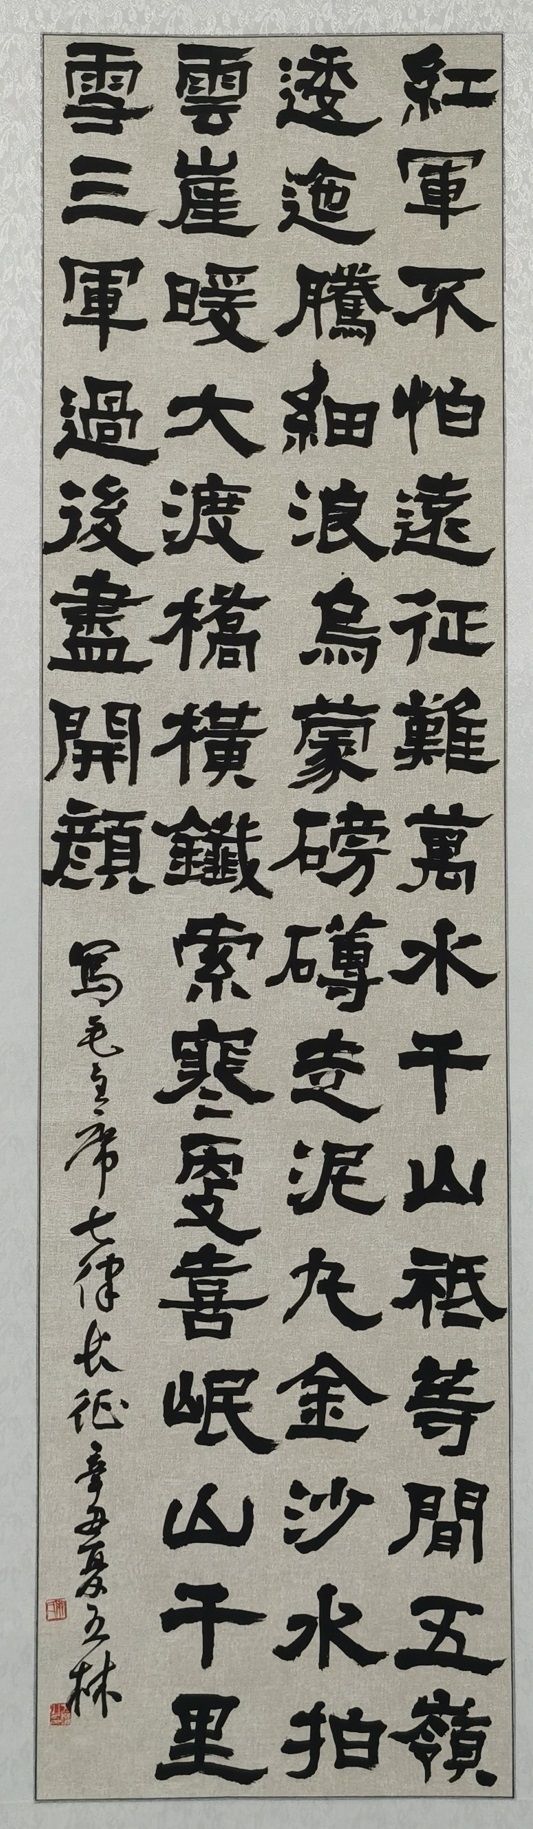 紅軍不怕遠征難萬水千山祗等間五嶺
逶迤騰細浪烏蒙磅礡走泥丸金沙水拍
雲崖暖大渡橋橫鐵索寒更喜岷山千里
雪三軍過後盡開顔
写毛主席七律长征辛丑夏林